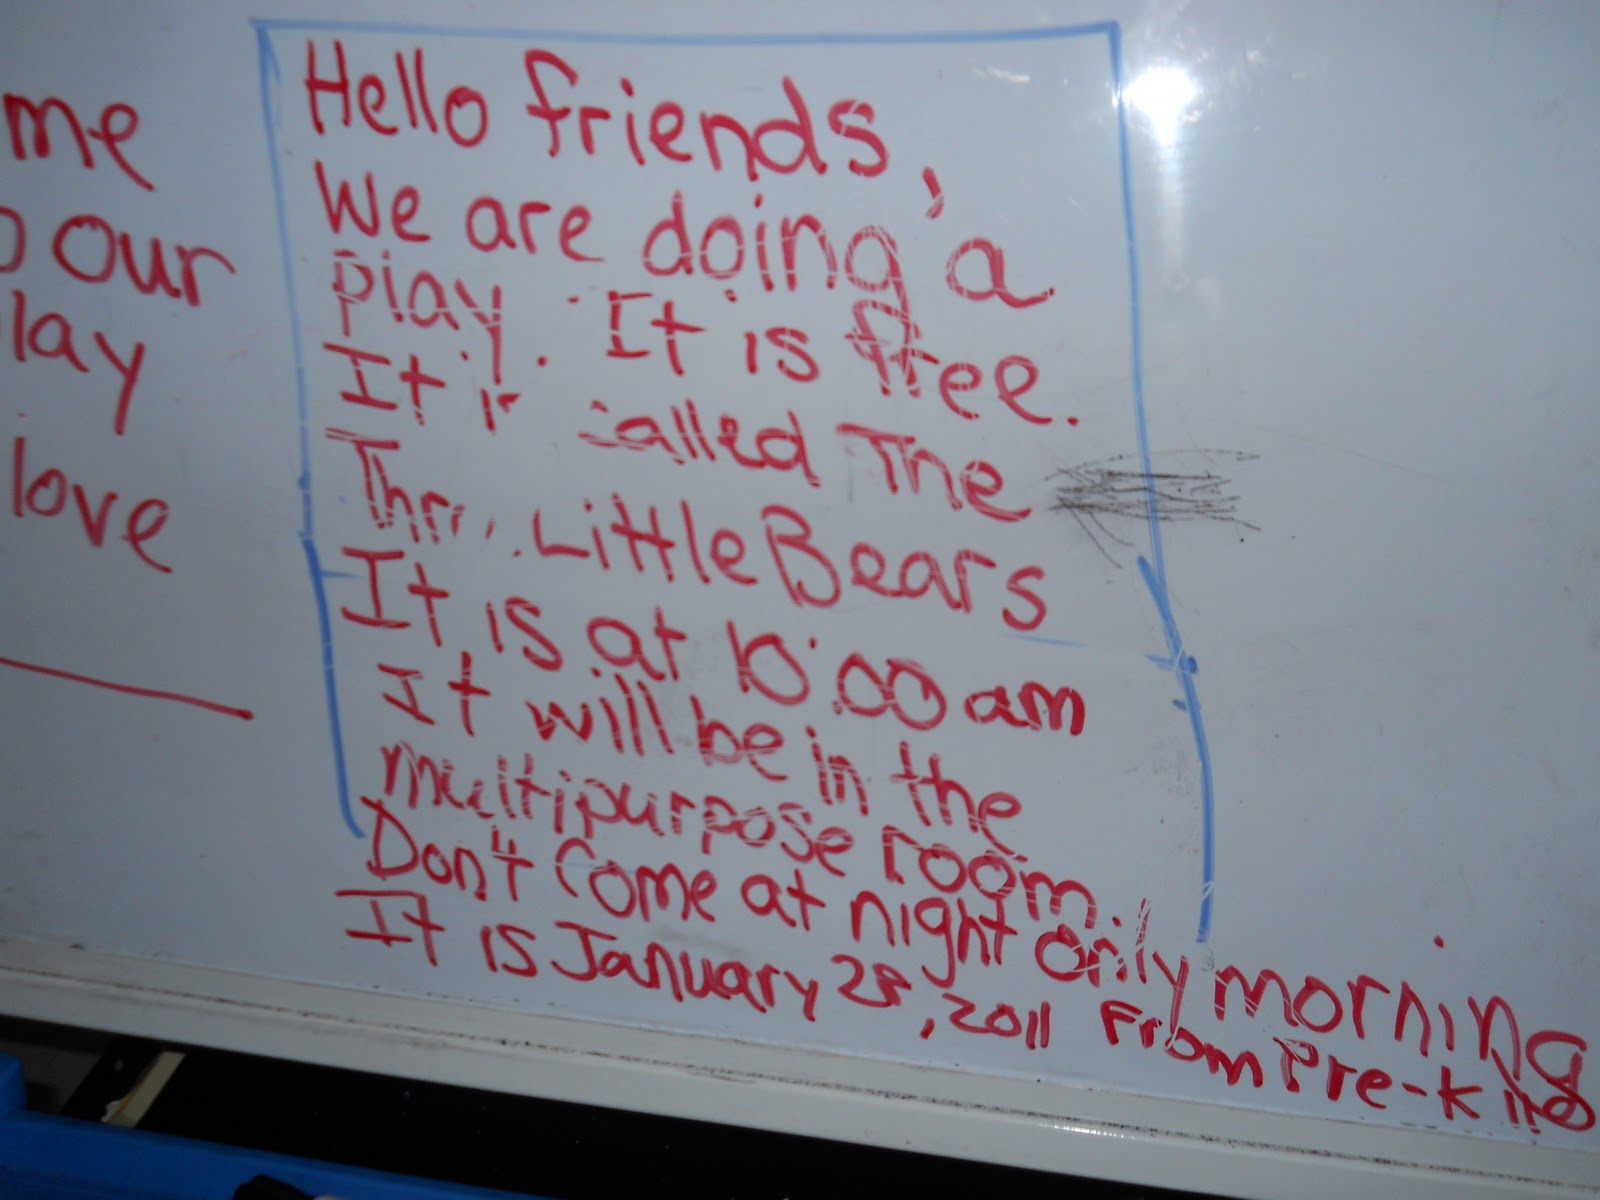 me
our
lay
love
Hello friends,
We are doing a
play. It is free.
It is called The
Little Bears
It is at 10:00 am
It will be in the
multipurpose room.
Don't come at night only morning
It is January 28, 2011 From Pre-K